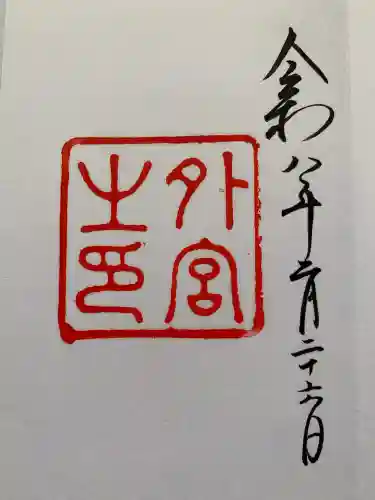 令和八年二月二十六日
外宮
之印